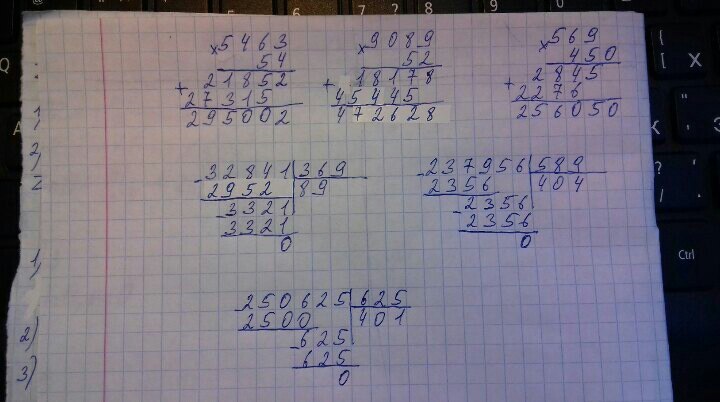 6 7 8 9
×5463
54
+21852
27315
295002
×9089
52
+18178
45445
472628
×569
450
+2845
2276
256050
-32841 369
2952 89
-3321
3321
0
-237956 589
2356 404
-2356
2356
0
-250625 625
2500 401
-625
625
0
1)
2)
1)
2)
3)
Q
A
[ X
Ctrl